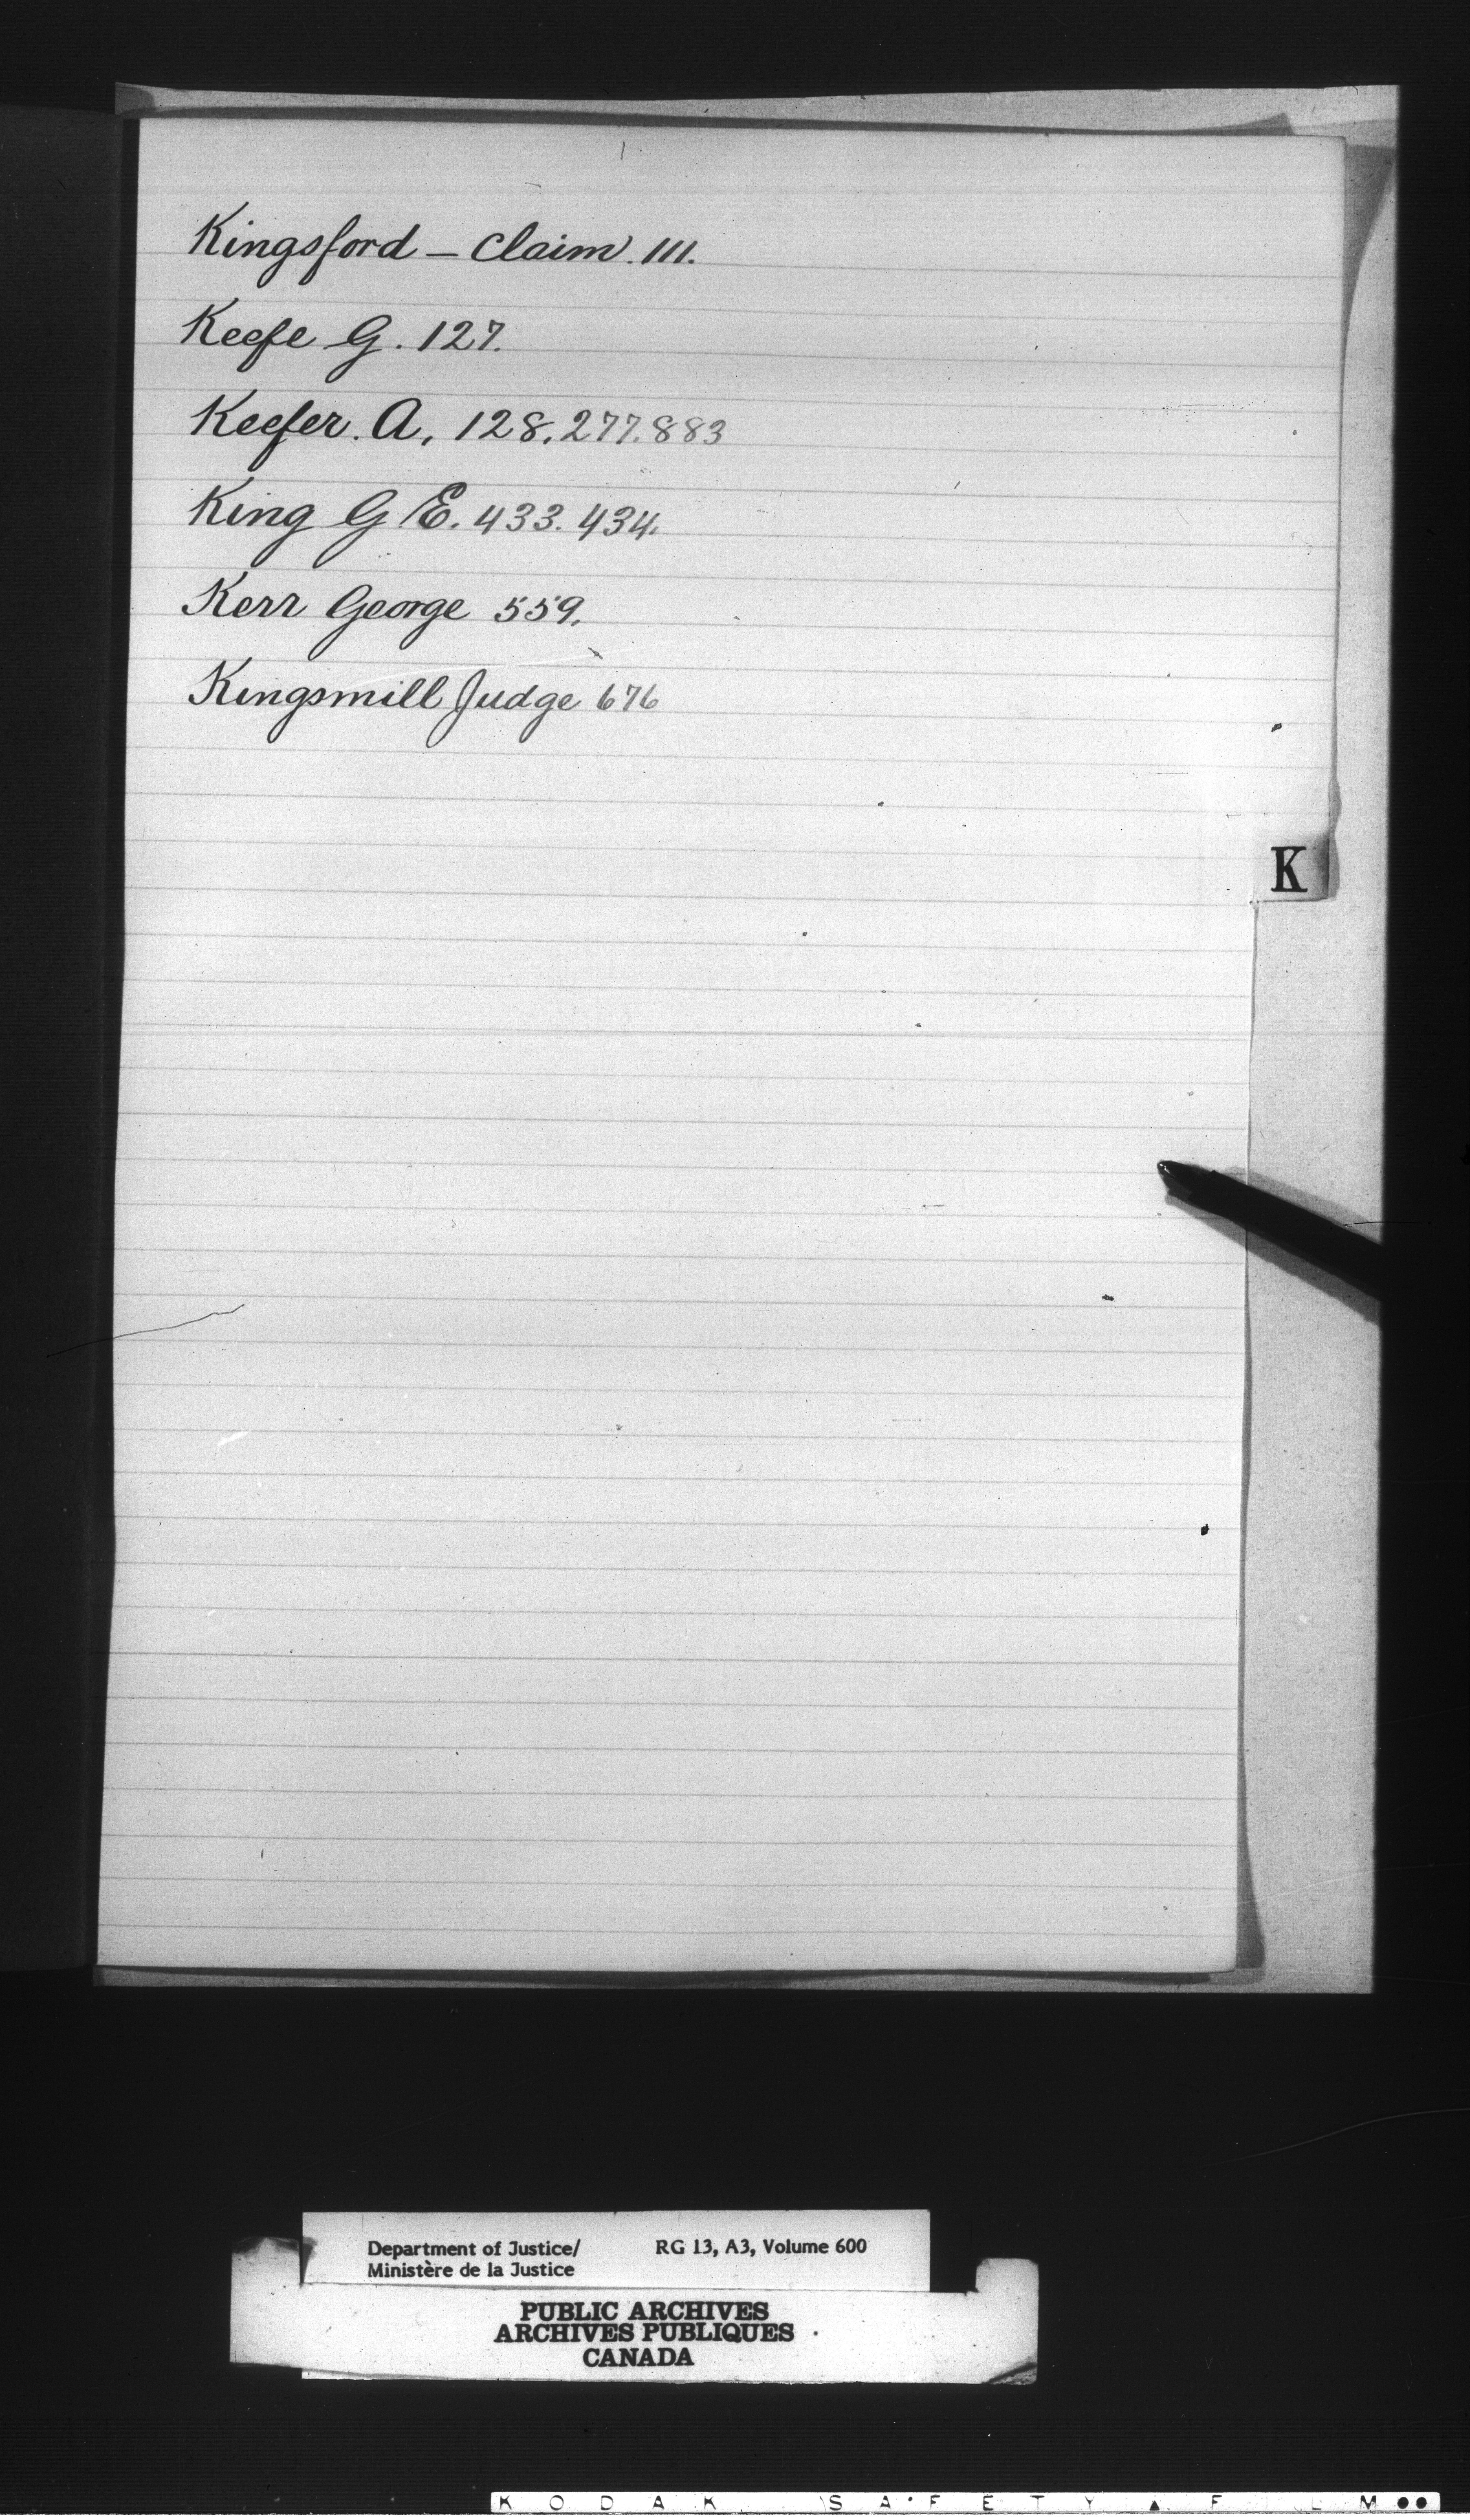 Kingsford – Claim. 111.
Keefe G. 127.
Keefer. A, 128. 277. 883
King G E. 433. 434.
Kerr George 559.
Kingsmill Judge 676
K
Department of Justice/ RG 13, A3, Volume 600
Ministère de la Justice
PUBLIC ARCHIVES
ARCHIVES PUBLIQUES
CANADA
KODAK SAFETY FILM